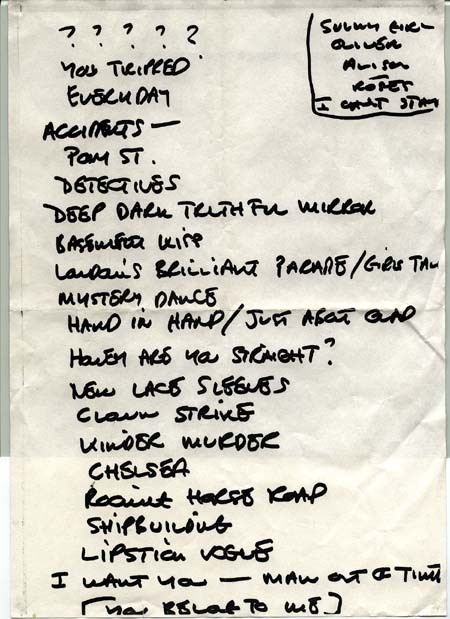 ? ? ? ? ?
YOU TRIPPED
EVERYDAY
ACCIDENTS —
POW ST.
DETECTIVES
DEEP DARK TRUTHFUL MIRROR
BASEMENT KISS
LONDON'S BRILLIANT PARADE/GIRLS TALK
MYSTERY DANCE
HAND IN HAND/JUST ABOUT GLAD
HONEY ARE YOU STRAIGHT?
NEW LACE SLEEVES
CLOWN STRIKE
KINDER MURDER
CHELSEA
ROCKING HORSE ROAD
SHIPBUILDING
LIPSTICK VOGUE
I WANT YOU — MAN OUT OF TIME
[YOU BELONG TO ME]
SULKY GIRL
OLIVER
ALISON
ROPES
I CAN'T STAN